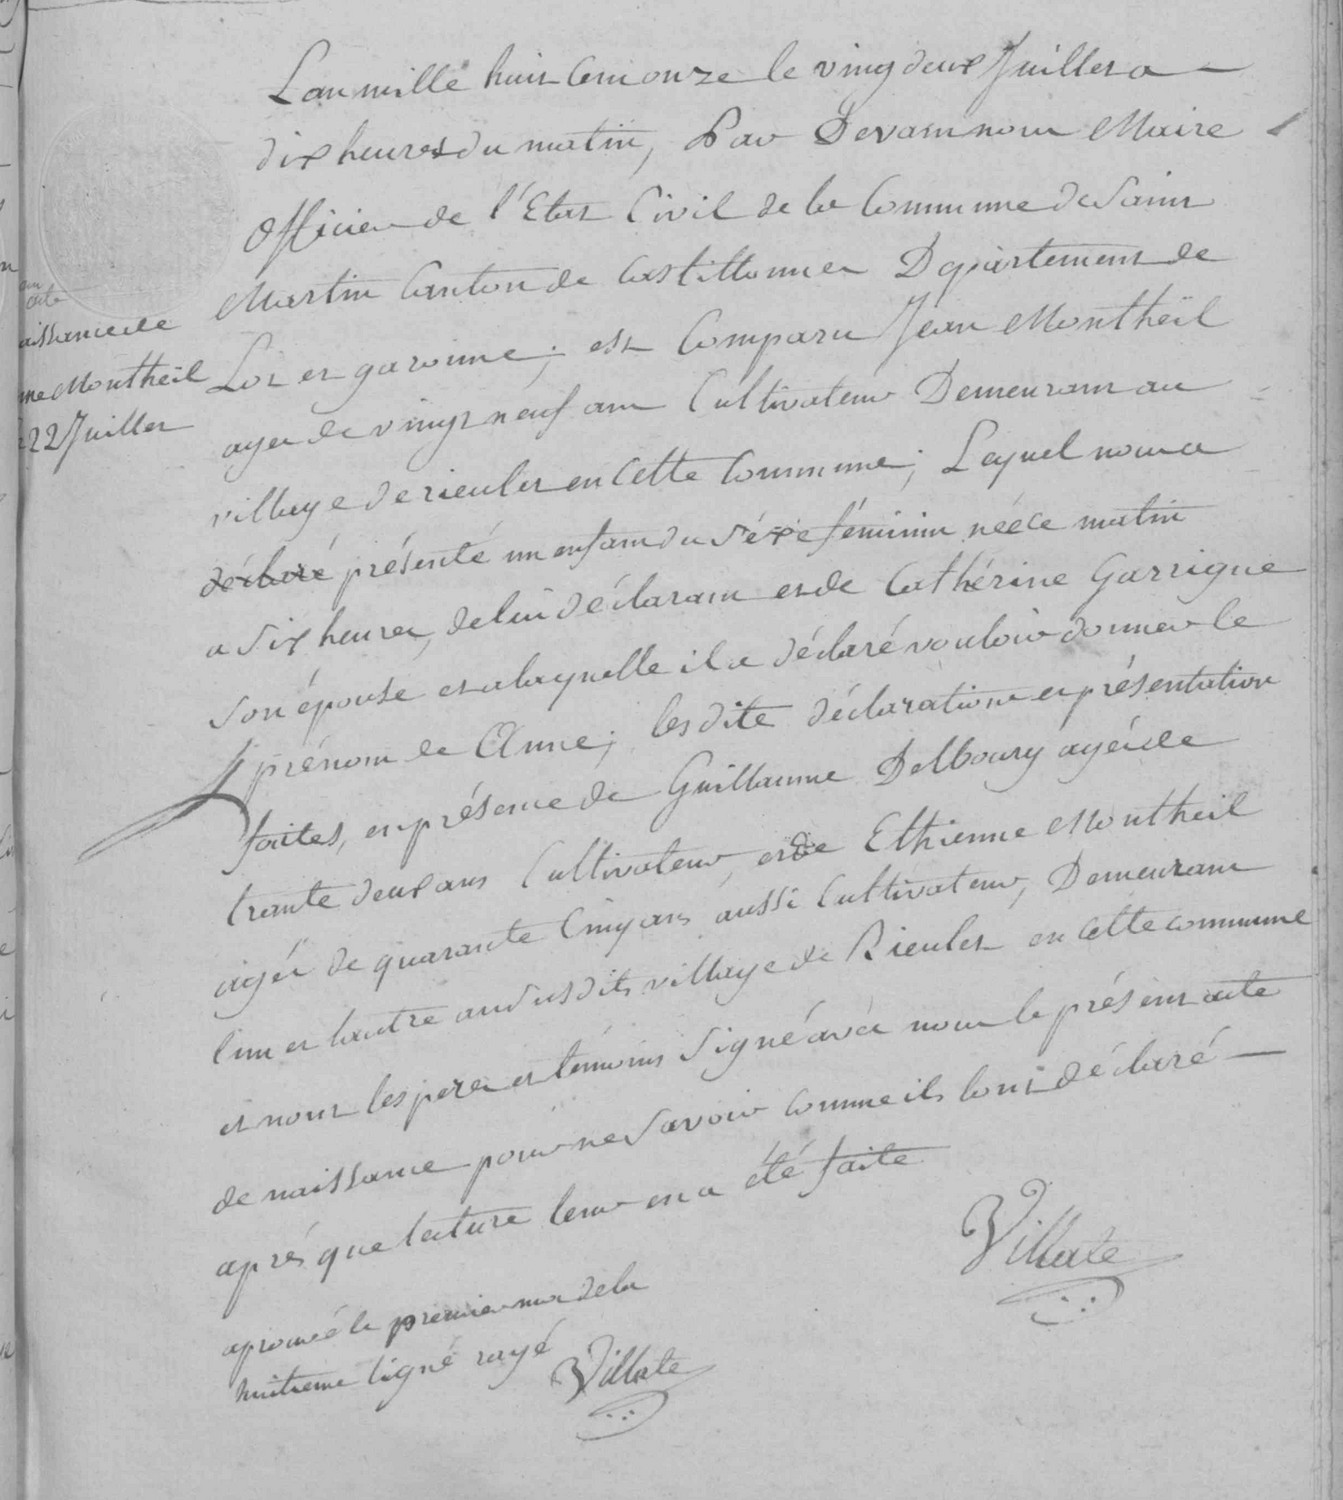 aissance de
ne Montheil
22 Juillet
L'an mille huit cent onze le vingt deux Juillet a
dix heures du matin, Par Devant nous Maire
Officier de l'Etat Civil de la Commune de Saint
Martin Canton de Castillonnes Departement de
Lot et garonne; est Comparu Jean Montheil
agé de vingt neuf ans Cultivateur Demeurant au
village de rieulet en Cette Commune; Lequel nous a
déclaré présenté un enfant du séxe féminin née ce matin
a six heures, de lui déclarant et de Cathérine Garrigue
son épouse et a laquelle il a déclaré vouloir donner le
prénom de Anne; lesdite déclaration et présentation
faites, en présence de Guillaume Delboury agé de
trante deux ans Cultivateur, et de Ethienne Montheil
agé de quarante Cinq ans aussi Cultivateur, Demeurant
l'un et l'autre au susdits village de Rieulet en Cette commune
et nont les pere et témoins signé avec nous le présent acte
de naissance pour ne savoir comme ils l'ont déclaré
aprés que lecture leur en a été faite
Villate
aprouvé le premier mot de la
huitieme ligne rayé
Villate